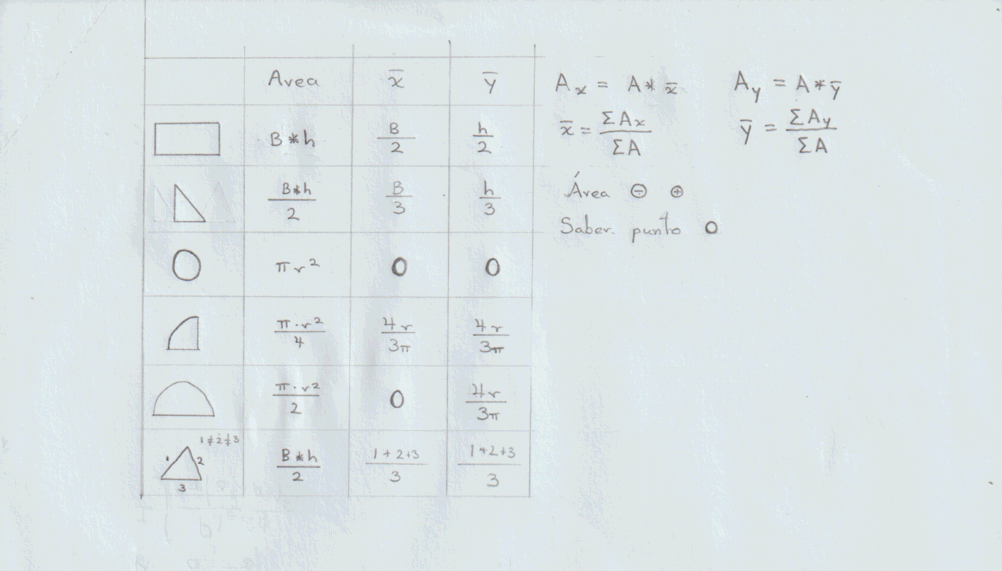 Area x̄ ȳ
B*h B/2 h/2
B*h/2 B/3 h/3
πr² 0 0
π·r²/4 4r/3π 4r/3π
π·r²/2 0 4r/3π
1≠2≠3
1 2 3 B*h/2 1+2+3/3 1+2+3/3
Ax = A*x̄ Ay = A*ȳ
x̄ = ΣAx/ΣA ȳ = ΣAy/ΣA
Área ⊖ ⊕
Saber punto O